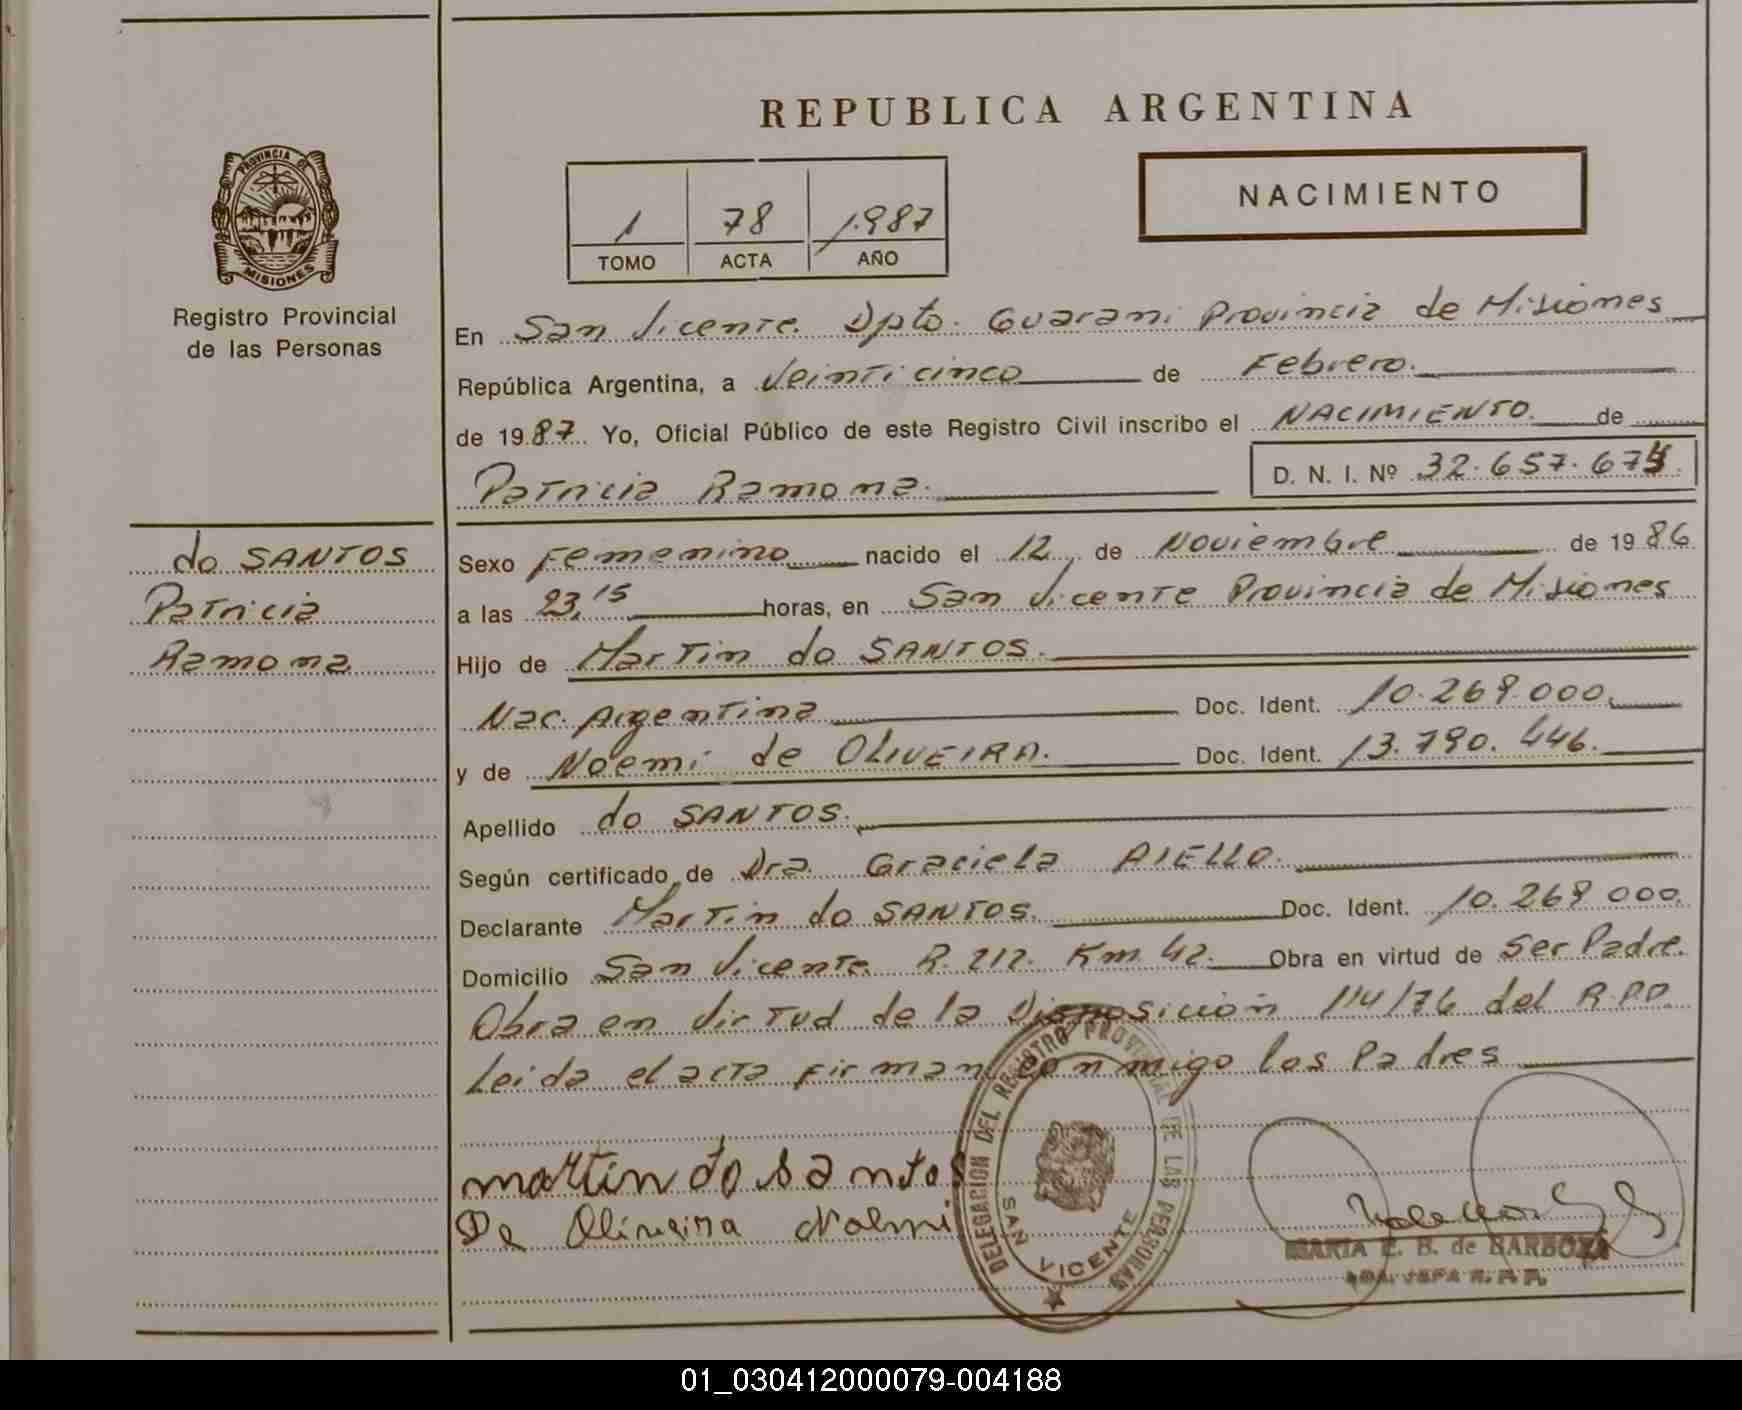 REPUBLICA ARGENTINA
PROVINCIA DE
MISIONES
Registro Provincial
de las Personas
1 78 1.987
TOMO ACTA AÑO
NACIMIENTO
En San Vicente Dpto. Guarani Provincia de Misiones
República Argentina, a Veinticinco de Febrero.
de 1987 Yo, Oficial Público de este Registro Civil inscribo el NACIMIENTO. de
Patricia Ramona. D. N. I. Nº 32.657.67
do SANTOS
Patricia
Ramona
Sexo Femenino nacido el 12 de Noviembre de 1986
a las 23,15 horas, en San Vicente Provincia de Misiones
Hijo de Martin do SANTOS.
Nac. Argentina Doc. Ident. 10.269.000.
y de Noemi de OLIVEIRA. Doc. Ident. 13.790.446.
Apellido do SANTOS.
Según certificado de Dra. Graciela AIELLO.
Declarante Martin do SANTOS. Doc. Ident. 10.269.000.
Domicilio San Vicente R. 212. Km 42. Obra en virtud de Ser Padre.
Obra en Virtud de la Disposición 114/76 del R.P.P.
Leida el acta firman conmigo los Padres
martin do santos
De Oliveira Noemi
DELEGACION DEL REGISTRO PROVINCIAL DE LAS PERSONAS
SAN VICENTE
MARIA E. B. de BARBOZA
JEFA R. P. P.
01_030412000079-004188